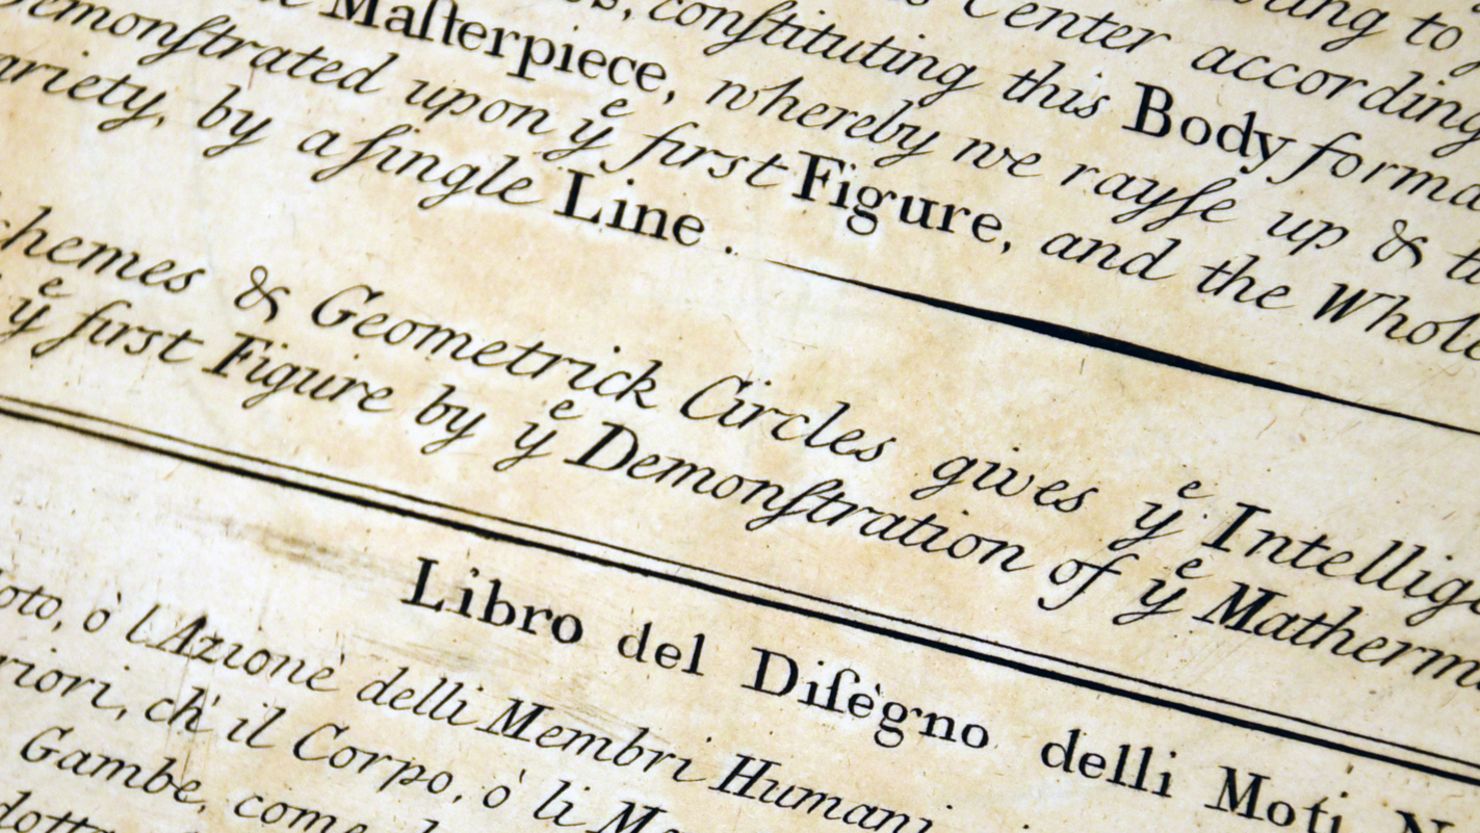 ing to
Center according
conſtituting this Body forma
Maſterpiece, whereby we rayſe up &
emonſtrated upon yͤ first Figure, and the Whole
ariety, by a ſingle Line.
chemes & Geometrick Circles gives yͤ Intellige
yͤ first Figure by yͤ Demonſtration of yͤ Matherm
Libro del Diſègno delli Moti N
oto, ò l'Azionè delli Membri Humani
riori, ch' il Corpo, ò li M
Gambe, come
dotta